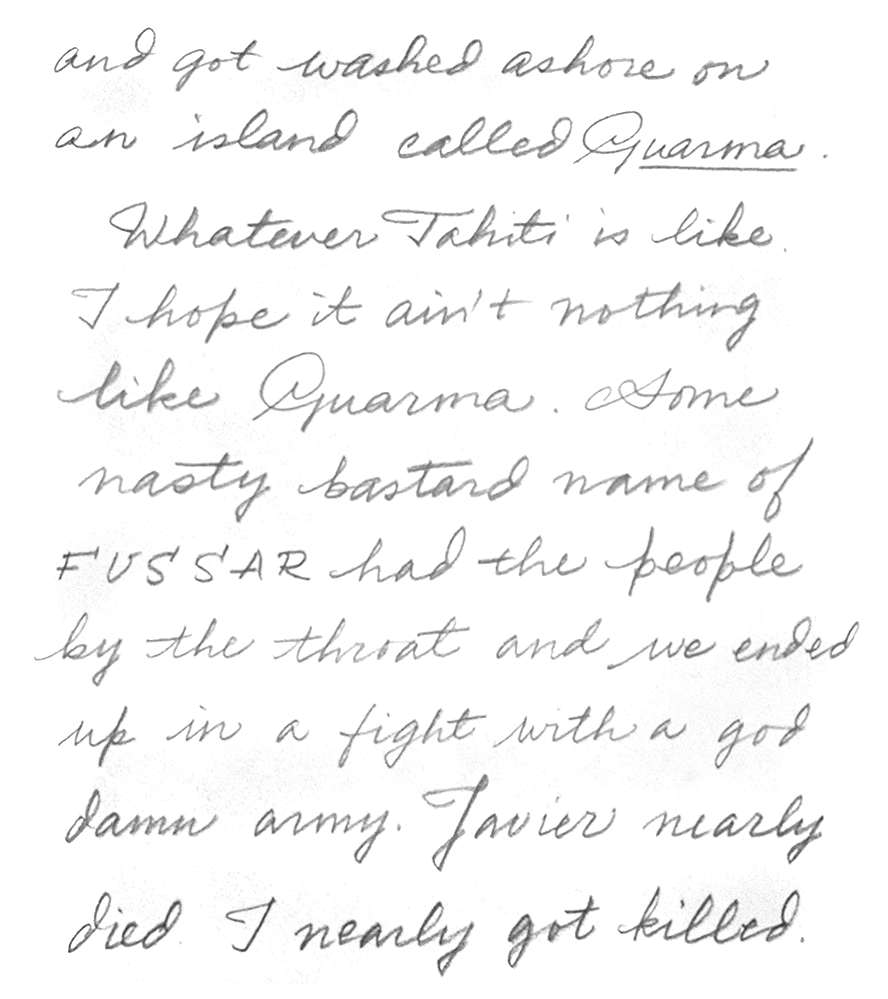 and got washed ashore on
an island called Guarma.
Whatever Tahiti is like.
I hope it ain't nothing
like Guarma. Some
nasty bastard name of
FUSSAR had the people
by the throat and we ended
up in a fight with a god
damn army. Javier nearly
died I nearly got killed.